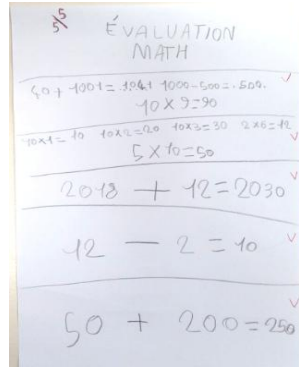 5
5
ÉVALUATION
MATH
1000-500=.500.
10x9=90
10x1=10 10x2=20 10x3=30 2x6=12
5x10=50
2018 + 12=2030
12 - 2=10
50 + 200=250